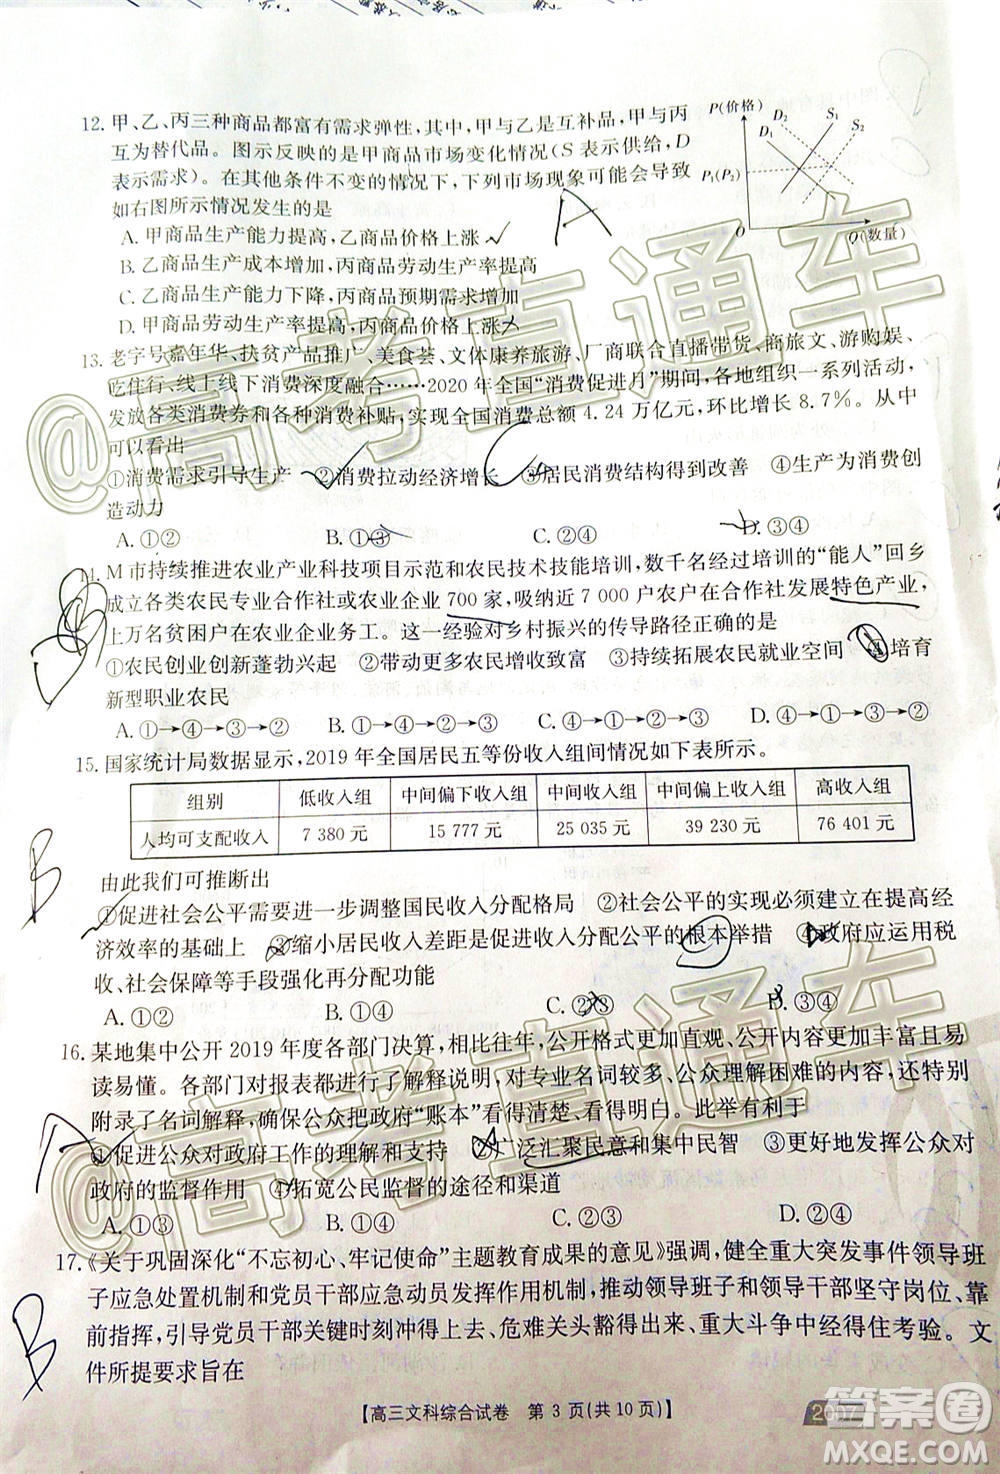 12. 甲、乙、丙三种商品都富有需求弹性,其中,甲与乙是互补品,甲与丙
互为替代品。图示反映的是甲商品市场变化情况(S 表示供给,D
表示需求)。在其他条件不变的情况下,下列市场现象可能会引发
如右图所示情况发生的是
P(价格)
S₁
S₂
D₂
D₁
P₁(P₂)
O
Q(数量)
A. 甲商品生产能力提高,乙商品价格上涨
B. 乙商品生产成本增加,丙商品劳动生产率提高
C. 乙商品生产能力下降,丙商品预期需求增加
D. 甲商品劳动生产率提高,丙商品价格上涨
13. 老字号嘉年华、扶贫产品推广、美食荟、文体康养旅游、厂商联合直播带货、商旅文、游购娱、
吃住行、线上线下消费深度融合……2020 年全国“消费促进月”期间,各地组织一系列活动,
发放各类消费券和各种消费补贴,实现全国消费总额 4.24 万亿元,环比增长 8.7%。从中
可以看出
①消费需求引导生产 ②消费拉动经济增长 ③居民消费结构得到改善 ④生产为消费创
造动力
A. ①② B. ①③ C. ②④ D. ③④
14. M 市持续推进农业产业科技项目示范和农民技术技能培训,数千名经过培训的“能人”回乡
成立各类农民专业合作社或农业企业 700 家,吸纳近 7 000 户农户在合作社发展特色产业,
上万名贫困户在农业企业务工。这一经验对乡村振兴的传导路径正确的是
①农民创业创新蓬勃兴起 ②带动更多农民增收致富 ③持续拓展农民就业空间 ④培育
新型职业农民
A. ①→④→③→② B. ①→④→②→③ C. ④→①→③→② D. ④→①→②→③
15. 国家统计局数据显示,2019 年全国居民五等份收入组间情况如下表所示。
组别 低收入组 中间偏下收入组 中间收入组 中间偏上收入组 高收入组
人均可支配收入 7 380 元 15 777 元 25 035 元 39 230 元 76 401 元
由此我们可推断出
①促进社会公平需要进一步调整国民收入分配格局 ②社会公平的实现必须建立在提高经
济效率的基础上 ③缩小居民收入差距是促进收入分配公平的根本举措 ④政府应运用税
收、社会保障等手段强化再分配功能
A. ①② B. ①④ C. ②③ D. ③④
16. 某地集中公开 2019 年度各部门决算,相比往年,公开格式更加直观、公开内容更加丰富且易
读易懂。各部门对报表都进行了解释说明,对专业名词较多、公众理解困难的内容,还特别
附录了名词解释,确保公众把政府“账本”看得清楚、看得明白。此举有利于
①促进公众对政府工作的理解和支持 ②广泛汇聚民意和集中民智 ③更好地发挥公众对
政府的监督作用 ④拓宽公民监督的途径和渠道
A. ①③ B. ①④ C. ②③ D. ②④
17. 《关于巩固深化“不忘初心、牢记使命”主题教育成果的意见》强调,健全重大突发事件领导班
子应急处置机制和党员干部应急动员发挥作用机制,推动领导班子和领导干部坚守岗位、靠
前指挥,引导党员干部关键时刻冲得上去、危难关头豁得出来、重大斗争中经得住考验。文
件所提要求旨在
【高三文科综合试卷 第 3 页(共 10 页)】
2007
A
B
A
B
@高考直通车
@高考直通车
答案圈
MXQE.COM